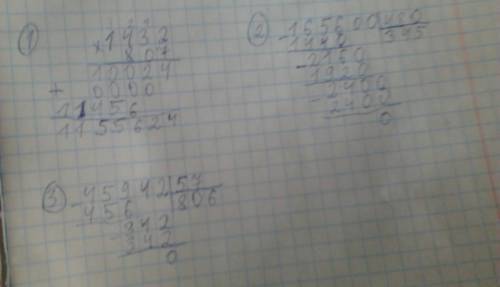 ①
1432
× 807
10024
+ 0000
11456
1155624
② - 165600 | 480
1440 | 345
- 2160
1920
- 2400
2400
0
③ - 45942 | 57
456 | 806
- 342
342
0